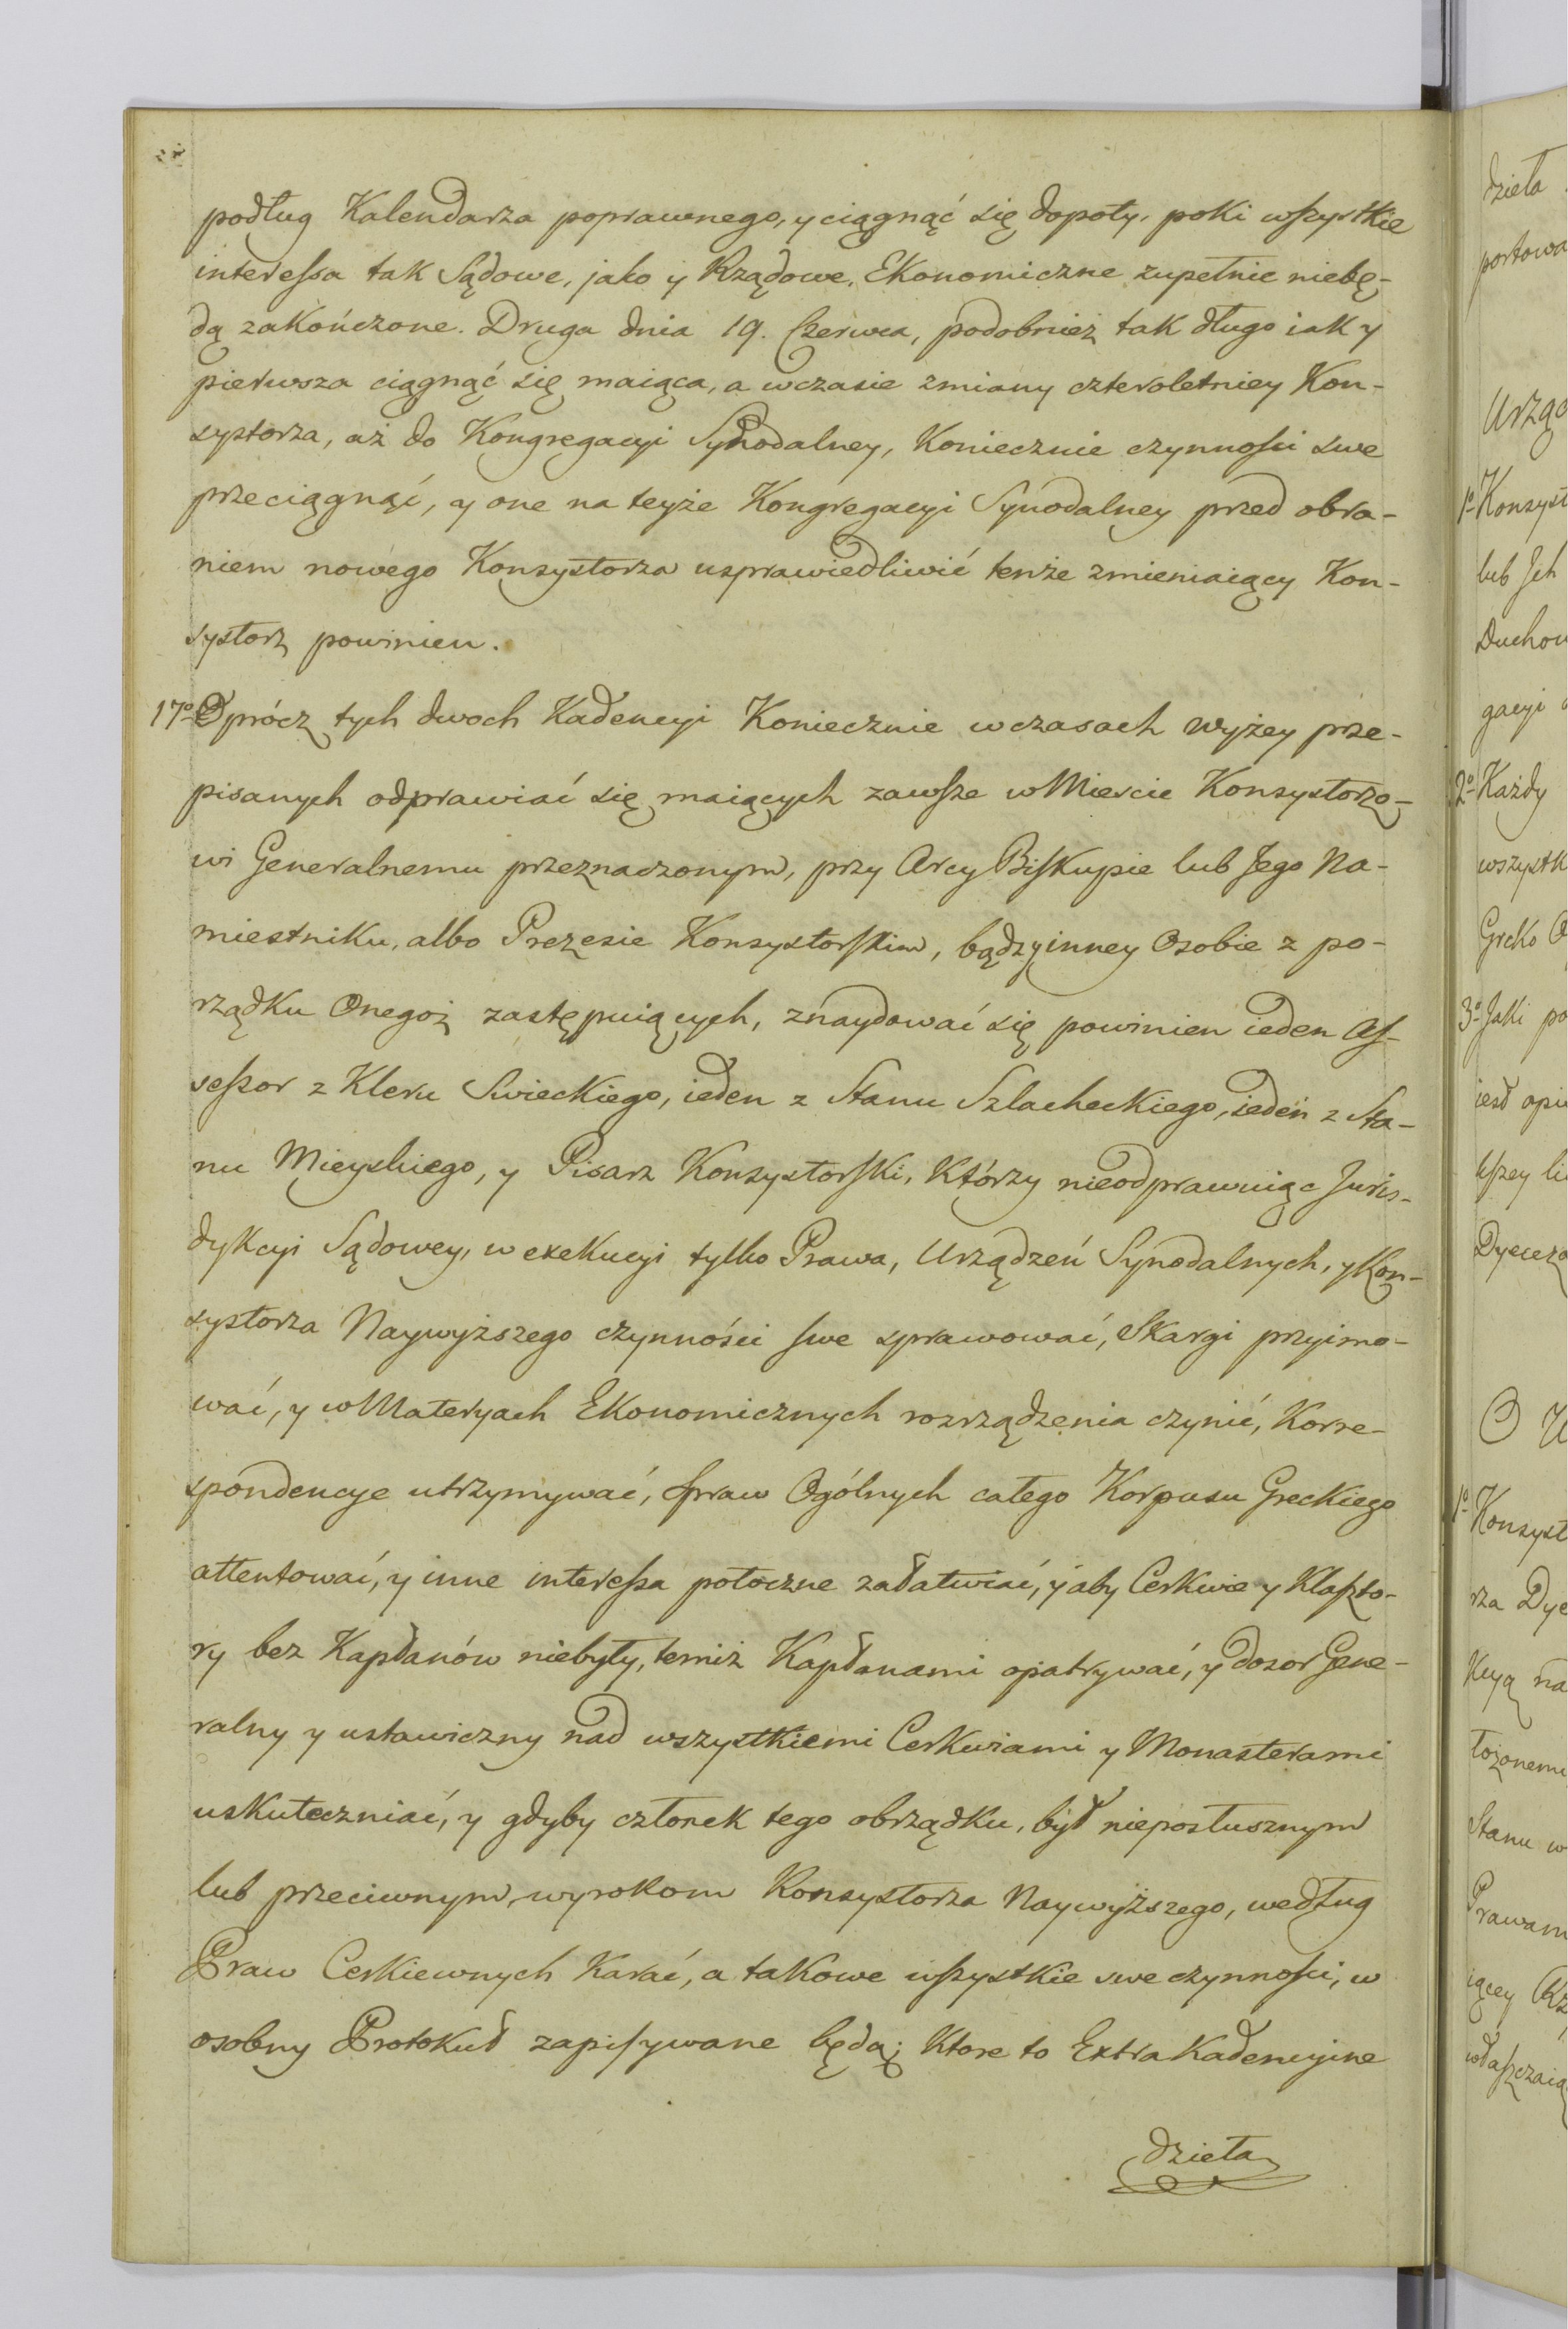 podług Kalendarza poprawnego, y ciągnąć się dopoty, poki wszystkie
interessa tak Sądowe, jako y Rządowe, Ekonomiczne zupełnie niebę-
dą zakończone. Druga dnia 19. Czerwca, podobnież tak długo iak y
pierwsza ciągnąć się maiąca, a wczasie zmiany czteroletniey Kon-
systorza, aż do Kongregacyi Synodalney, Koniecznie czynności swe
przeciągnąć, y one na teyże Kongregacyi Synodalney przed obra-
niem nowego Konsystorza usprawiedliwić tenże zmieniaiący Kon-
systorz powinien.
17o Oprócz tych dwoch Kadencyi Koniecznie w czasach wyżey prze-
pisanych odprawiać się maiących zawsze w Miescie Konsystorzo-
wi Generalnemu przeznaczonym, przy Arcy Biskupie lub Jego Na-
miestniku, albo Prezesie Konsystorskim, bądz yinney Osobie z po-
rządku Onegoż zastępuiących, znaydować się powinien ieden As-
sessor z Kleru Swieckiego, ieden z Stanu Szlacheckiego, ieden z Sta-
nu Mieyskiego, y Pisarz Konsystorski, Którzy nieodprawuiąc Juris-
dykcyi Sądowey, w exekucyi tylko Prawa, Urządzeń Synodalnych, y Kon-
systorza Naywyższego czynności swe sprawować, Skargi przyimo-
wać, y w Materyach Ekonomicznych rozrządzenia czynić, Korre-
spondencye utrzymywać, Spraw Ogólnych całego Korpusu Greckiego
attentować, y inne interessa potoczne załatwiać, y aby Cerkwie y Klaszto-
ry bez Kapłanów niebyły, temiż Kapłanami opatrywać, y dozor Gene-
ralny y ustawiczny nad wszystkiemi Cerkwiami y Monasterami
uskuteczniać, y gdyby członek tego obrządku, był nieposłusznym
lub przeciwnym, wyrokom Konsystorza Naywyższego, według
Praw Cerkiewnych Karać, a takowe wszystkie swe czynności, w
osobny Protokuł zapisywane będą; Ktore to Extra Kadencyine
dzieła
dzieła
portowa
Urząd
1o Konsyst
lub Jch
Duchow
gacyi
2o Każdy
wszystk
Greko O
3o Jaki po
iest opi
Dyecezo
O U
1o Konsyst
rza Dye
na
łożonemi
Stanu w
Prawam
iącey